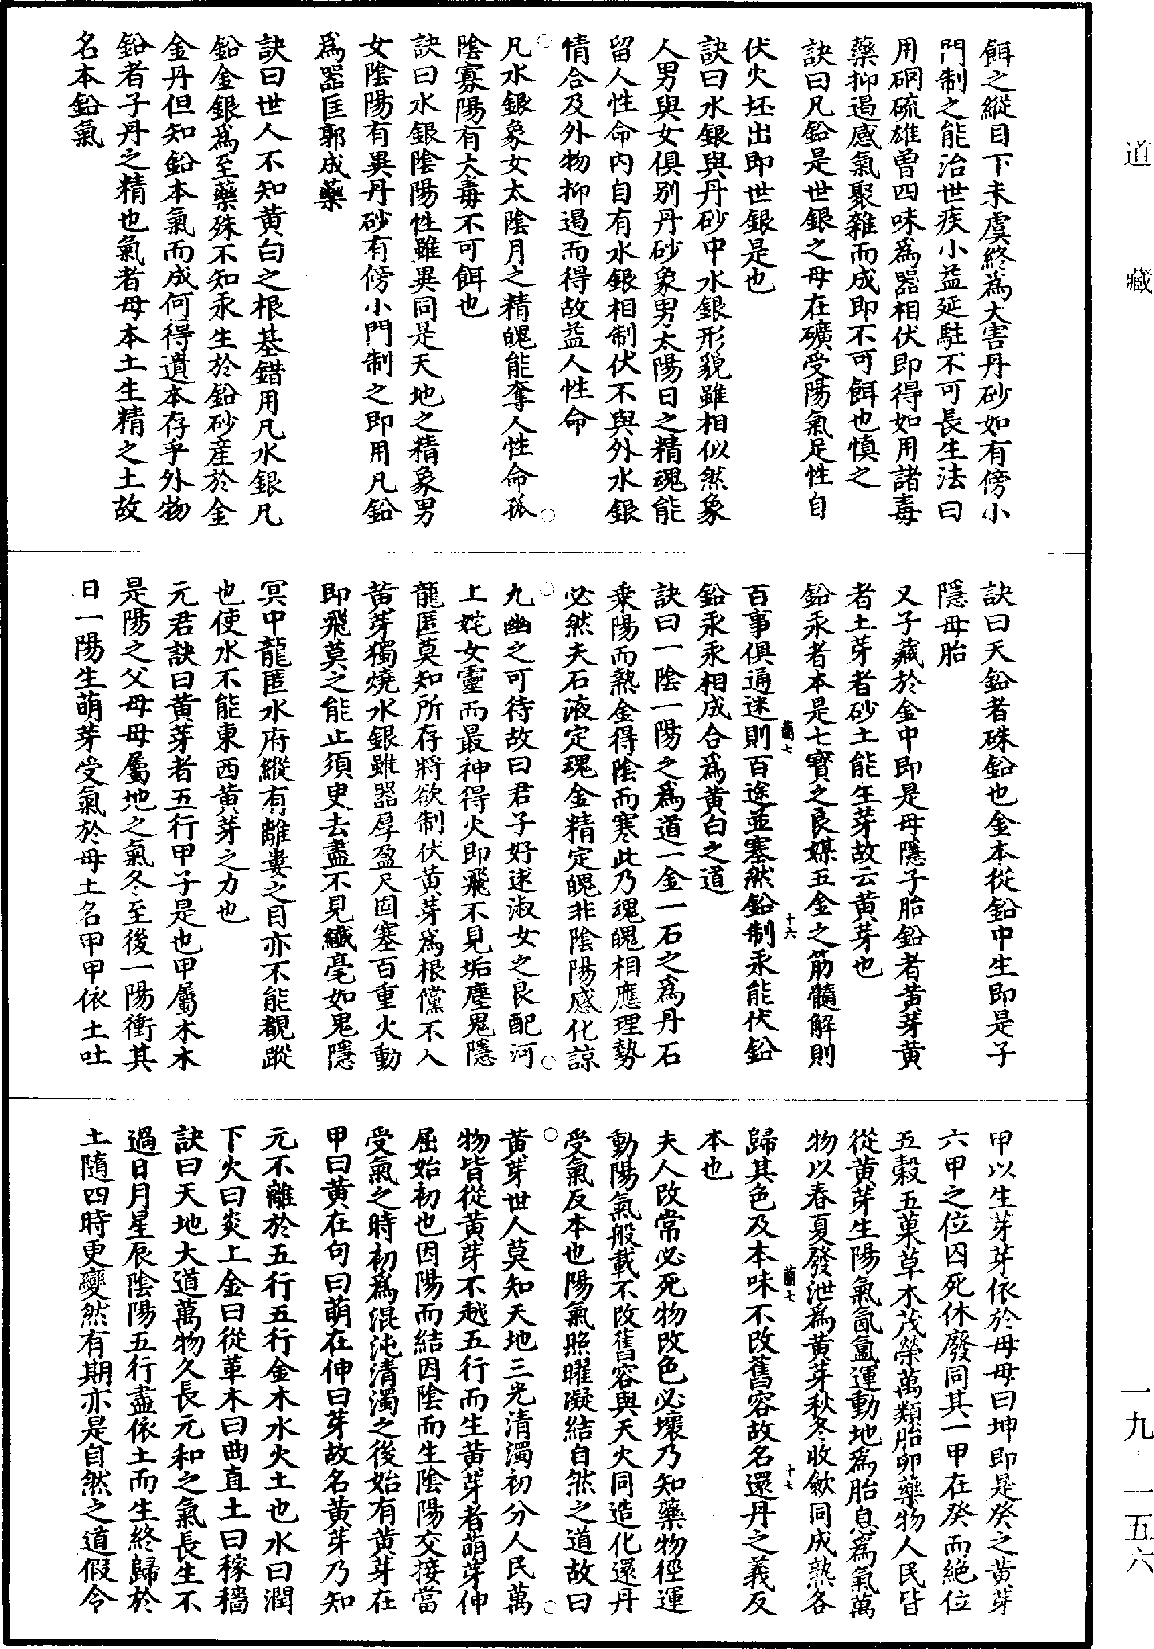 道藏
餌之縱目下未虞終爲大害丹砂如有傍小
門制之能治世疾小益延駐不可長生法曰
用硇硫雄曾四味爲器相伏即得如用諸毒
藥抑遏感氣聚雜而成即不可餌也慎之
訣曰凡鉛是世銀之母在礦受陽氣足性自
伏火坯出即世銀是也
訣曰水銀與丹砂中水銀形貌雖相似然象
人男與女俱别丹砂象男太陽日之精魂能
留人性命內自有水銀相制伏不與外水銀
情合及外物抑遏而得故益人性命
凡水銀象女太陰月之精魄能奪人性命孤
陰寡陽有大毒不可餌也
訣曰水銀陰陽性雖異同是天地之精象男
女陰陽有異丹砂有傍小門制之即用凡鉛
爲器匡郭成藥
訣曰世人不知黄白之根基錯用凡水銀凡
鉛金銀爲至藥殊不知汞生於鉛砂產於金
金丹但知鉛本氣而成何得遺本存乎外物
鉛者子丹之精也氣者母本土生精之土故
名本鉛氣
訣曰天鉛者硃鉛也金本從鉛中生即是子
隱母胎
又子藏於金中即是母隱子胎鉛者黄芽黄
者土芽者砂土能生芽故云黄芽也
鉛汞者本是七寶之良媒五金之筋髓解則
百事俱通迷則百途並塞然鉛制汞能伏鉛
蘭七
十六
鉛汞汞相成合爲黄白之道
訣曰一陰一陽之爲道一金一石之爲丹石
乘陽而熱金得陰而寒此乃魂魄相應理勢
必然夫石液定魂金精定魄非陰陽感化諒
九幽之可待故曰君子好逑淑女之良配河
上姹女靈而最神得火即飛不見垢塵鬼隱
龍匿莫知所存將欲制伏黄芽爲根儻不入
黄芽獨燒水銀雖器厚盈尺固塞百重火動
即飛莫之能止須臾去盡不見纖毫如鬼隱
冥中龍匿水府縱有離婁之目亦不能覩蹤
也使水不能東西黄芽之力也
元君訣曰黄芽者五行甲子是也甲屬木木
是陽之父母母屬地之氣冬至後一陽衝其
日一陽生萌芽受氣於母土名甲甲依土吐
甲以生芽芽依於母母曰坤即是癸之黄芽
六甲之位囚死休廢同其一甲在癸而絕位
五穀五菓草木茂榮萬類胎卵藥物人民皆
從黄芽生陽氣氤氲運動地爲胎息爲氣萬
物以春夏發泄爲黄芽秋冬收斂同成熟各
歸其色及本味不改舊容故名還丹之義反
蘭七
十七
本也
夫人改常必死物改色必壞乃知藥物徑運
動陽氣般載不改舊容與天火同造化還丹
受氣反本也陽氣照曜凝結自然之道故曰
黄芽世人莫知天地三光清濁初分人民萬
物皆從黄芽不越五行而生黄芽者萌芽伸
屈始初也因陽而結因陰而生陰陽交接當
受氣之時初爲混沌清濁之後始有黄芽在
甲曰黄在句曰萌在伸曰芽故名黄芽乃知
元不離於五行五行金木水火土也水曰潤
下火曰炎上金曰從革木曰曲直土曰稼穡
訣曰天地大道萬物久長元和之氣長生不
過日月星辰陰陽五行盡依土而生終歸於
土隨四時更變然有期亦是自然之道假令
一九 一五六